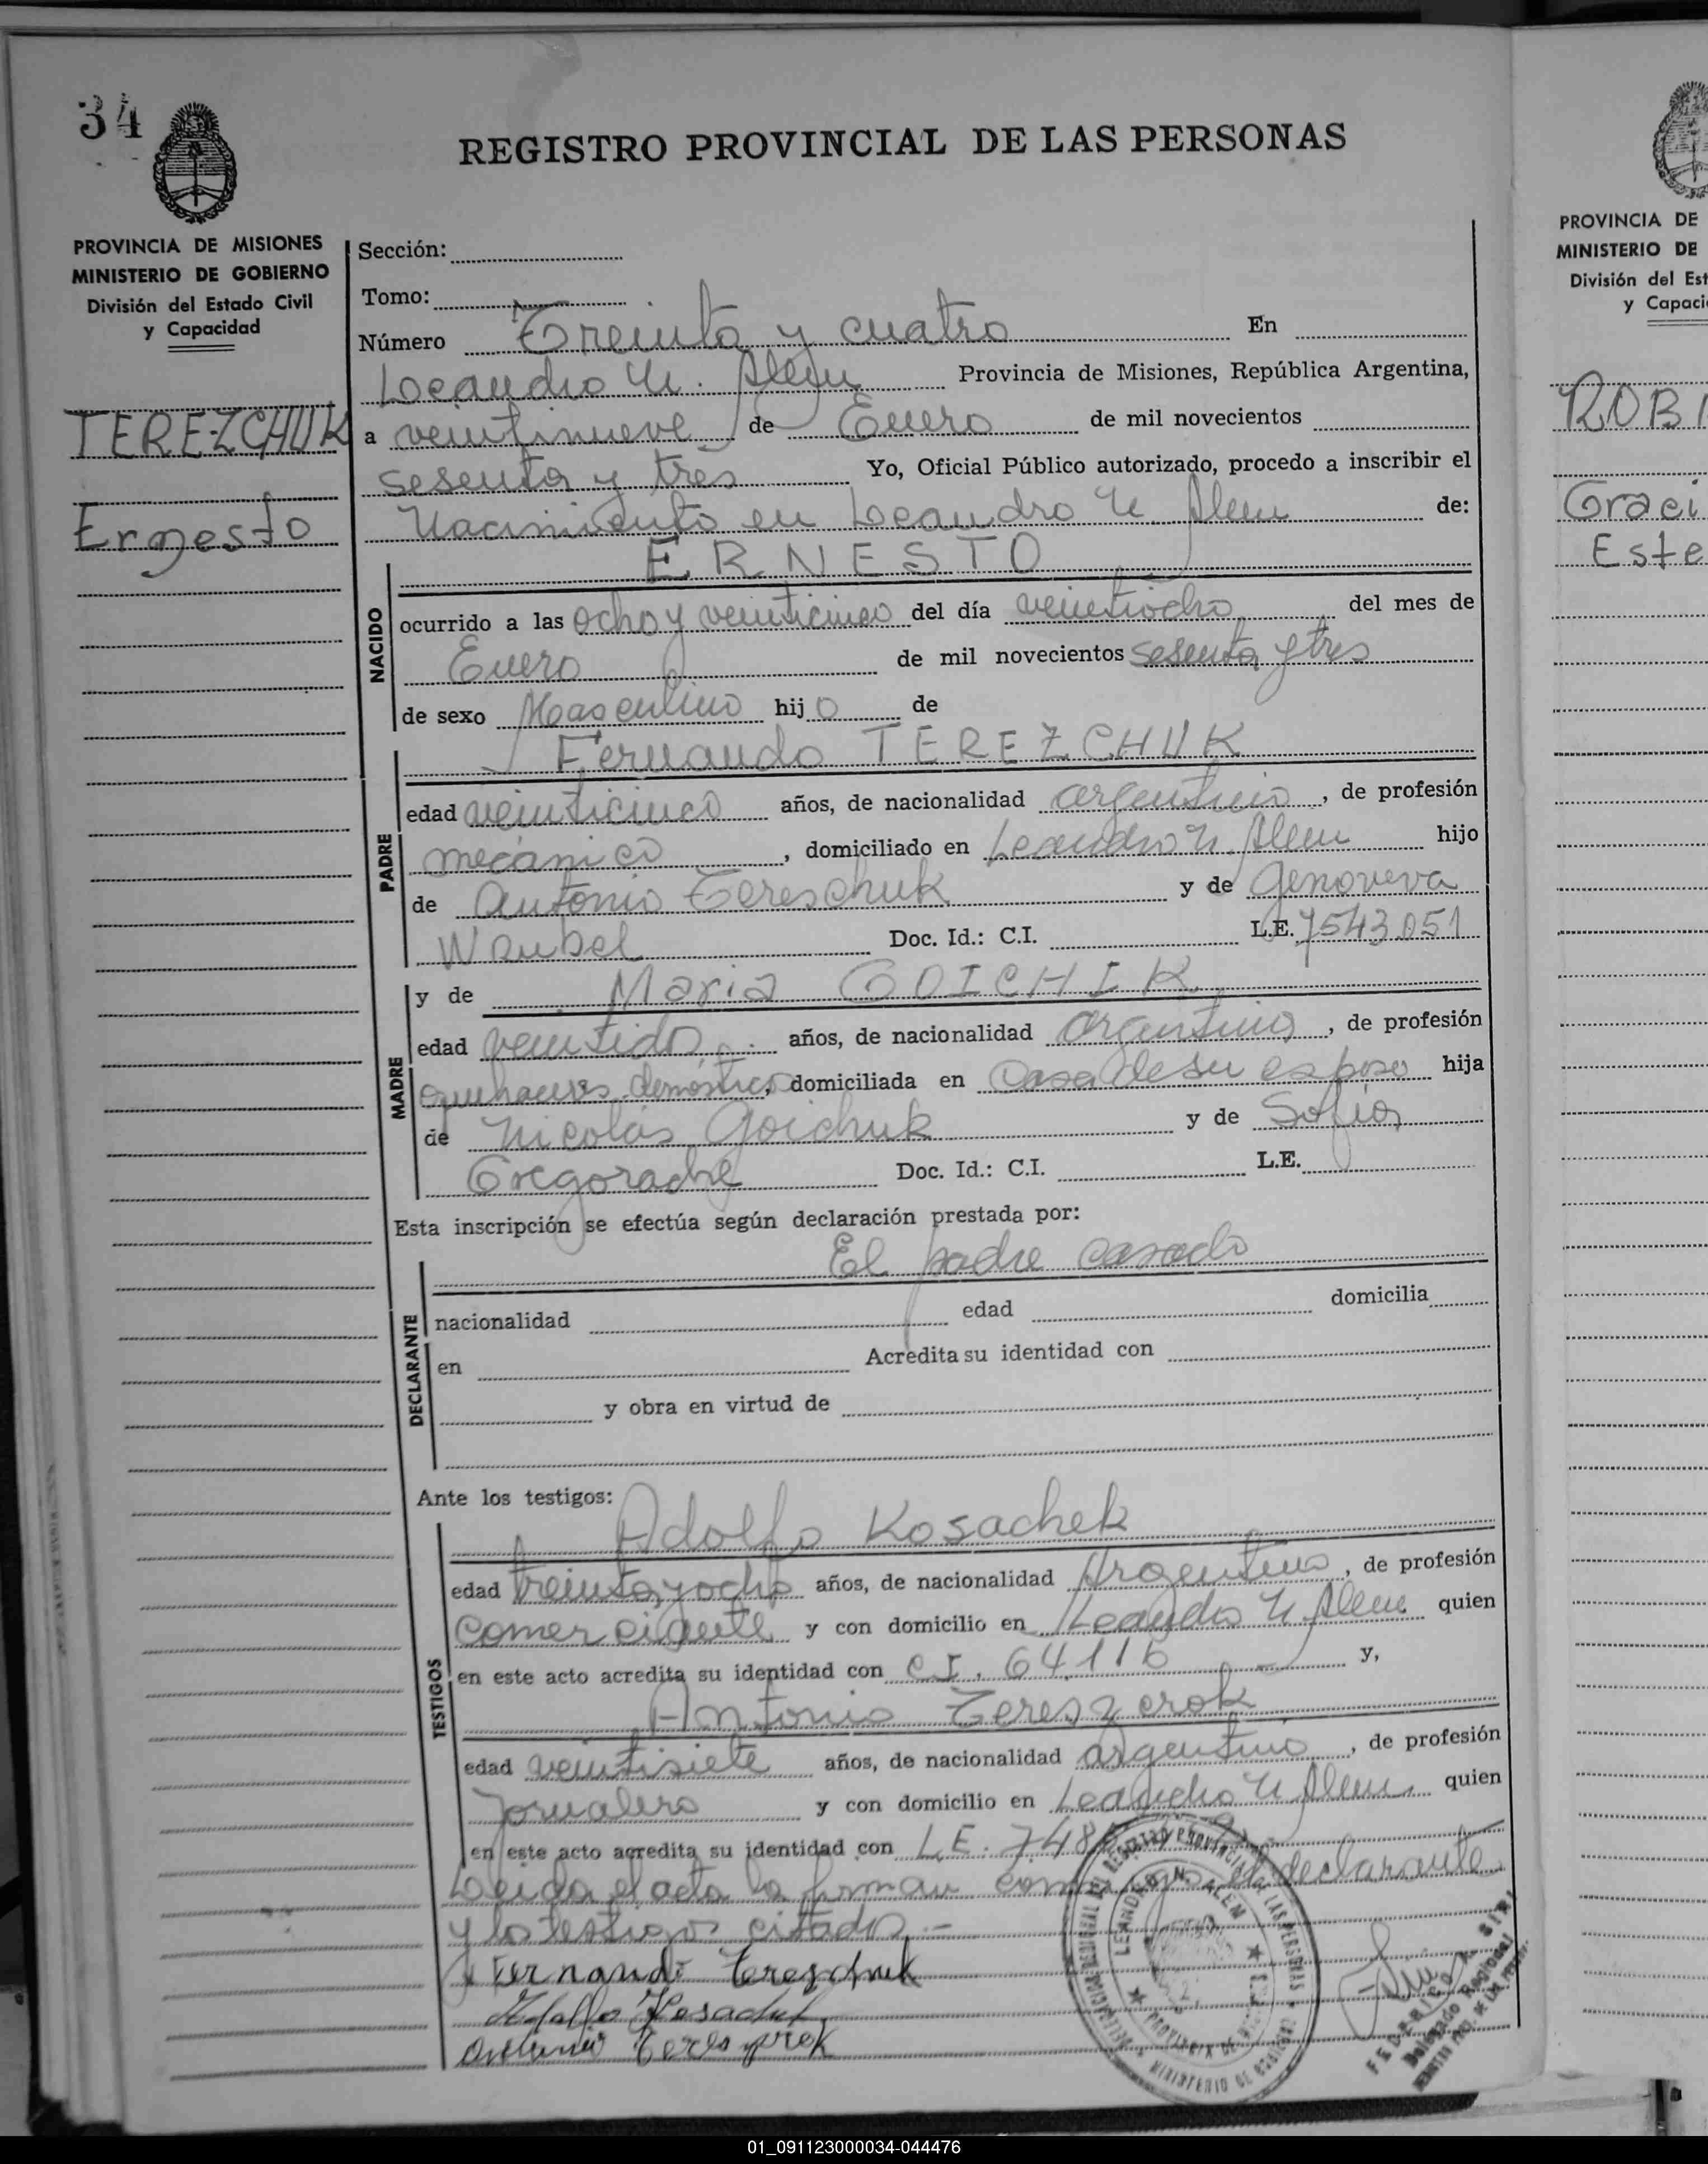 34
REGISTRO PROVINCIAL DE LAS PERSONAS
PROVINCIA DE MISIONES
MINISTERIO DE GOBIERNO
División del Estado Civil
y Capacidad
TEREZCHUK
Ernesto
Sección:
Tomo:
Número Treinta y cuatro En
Leandro N. Alem Provincia de Misiones, República Argentina,
a veintinueve de Enero de mil novecientos
sesenta y tres Yo, Oficial Público autorizado, procedo a inscribir el
Nacimiento en Leandro N. Alem de:
ERNESTO
NACIDO
ocurrido a las ocho y veinticinco del día veintiocho del mes de
Enero de mil novecientos sesenta y tres
de sexo Masculino hijo de
Fernando TEREZCHUK
PADRE
edad veinticinco años, de nacionalidad argentino, de profesión
mecánico, domiciliado en Leandro N. Alem hijo
de Antonio Tereschuk y de Genoveva
Doc. Id.: C.I. L.E. 7543.051
y de Maria GOICHIK
MADRE
edad veintidos años, de nacionalidad argentina, de profesión
quehaceres domésticos, domiciliada en casa de su esposo hija
de Nicolás Goichuk y de Sofía
Doc. Id.: C.I. L.E.
Esta inscripción se efectúa según declaración prestada por:
El padre casado
DECLARANTE
nacionalidad edad domicilia
en Acredita su identidad con
y obra en virtud de
Ante los testigos:
Adolfo Kosachek
TESTIGOS
edad treinta y ocho años, de nacionalidad Argentino, de profesión
comerciante y con domicilio en Leandro N. Alem quien
en este acto acredita su identidad con C.I. y,
Antonio
edad veintisiete años, de nacionalidad argentino, de profesión
Jornalero y con domicilio en Leandro N. Alem quien
en este acto acredita su identidad con L.E.
Leida el acta la firman conmigo el declarante
y los testigos citados.-
Fernando Terezchuk
Adolfo Kosachek
LEANDRO N. ALEM
FEDERICO
Delegado Regional
PROVINCIA DE
MINISTERIO DE
División del Est
y Capaci
ROBI
Graci
Este
01_091123000034-044476